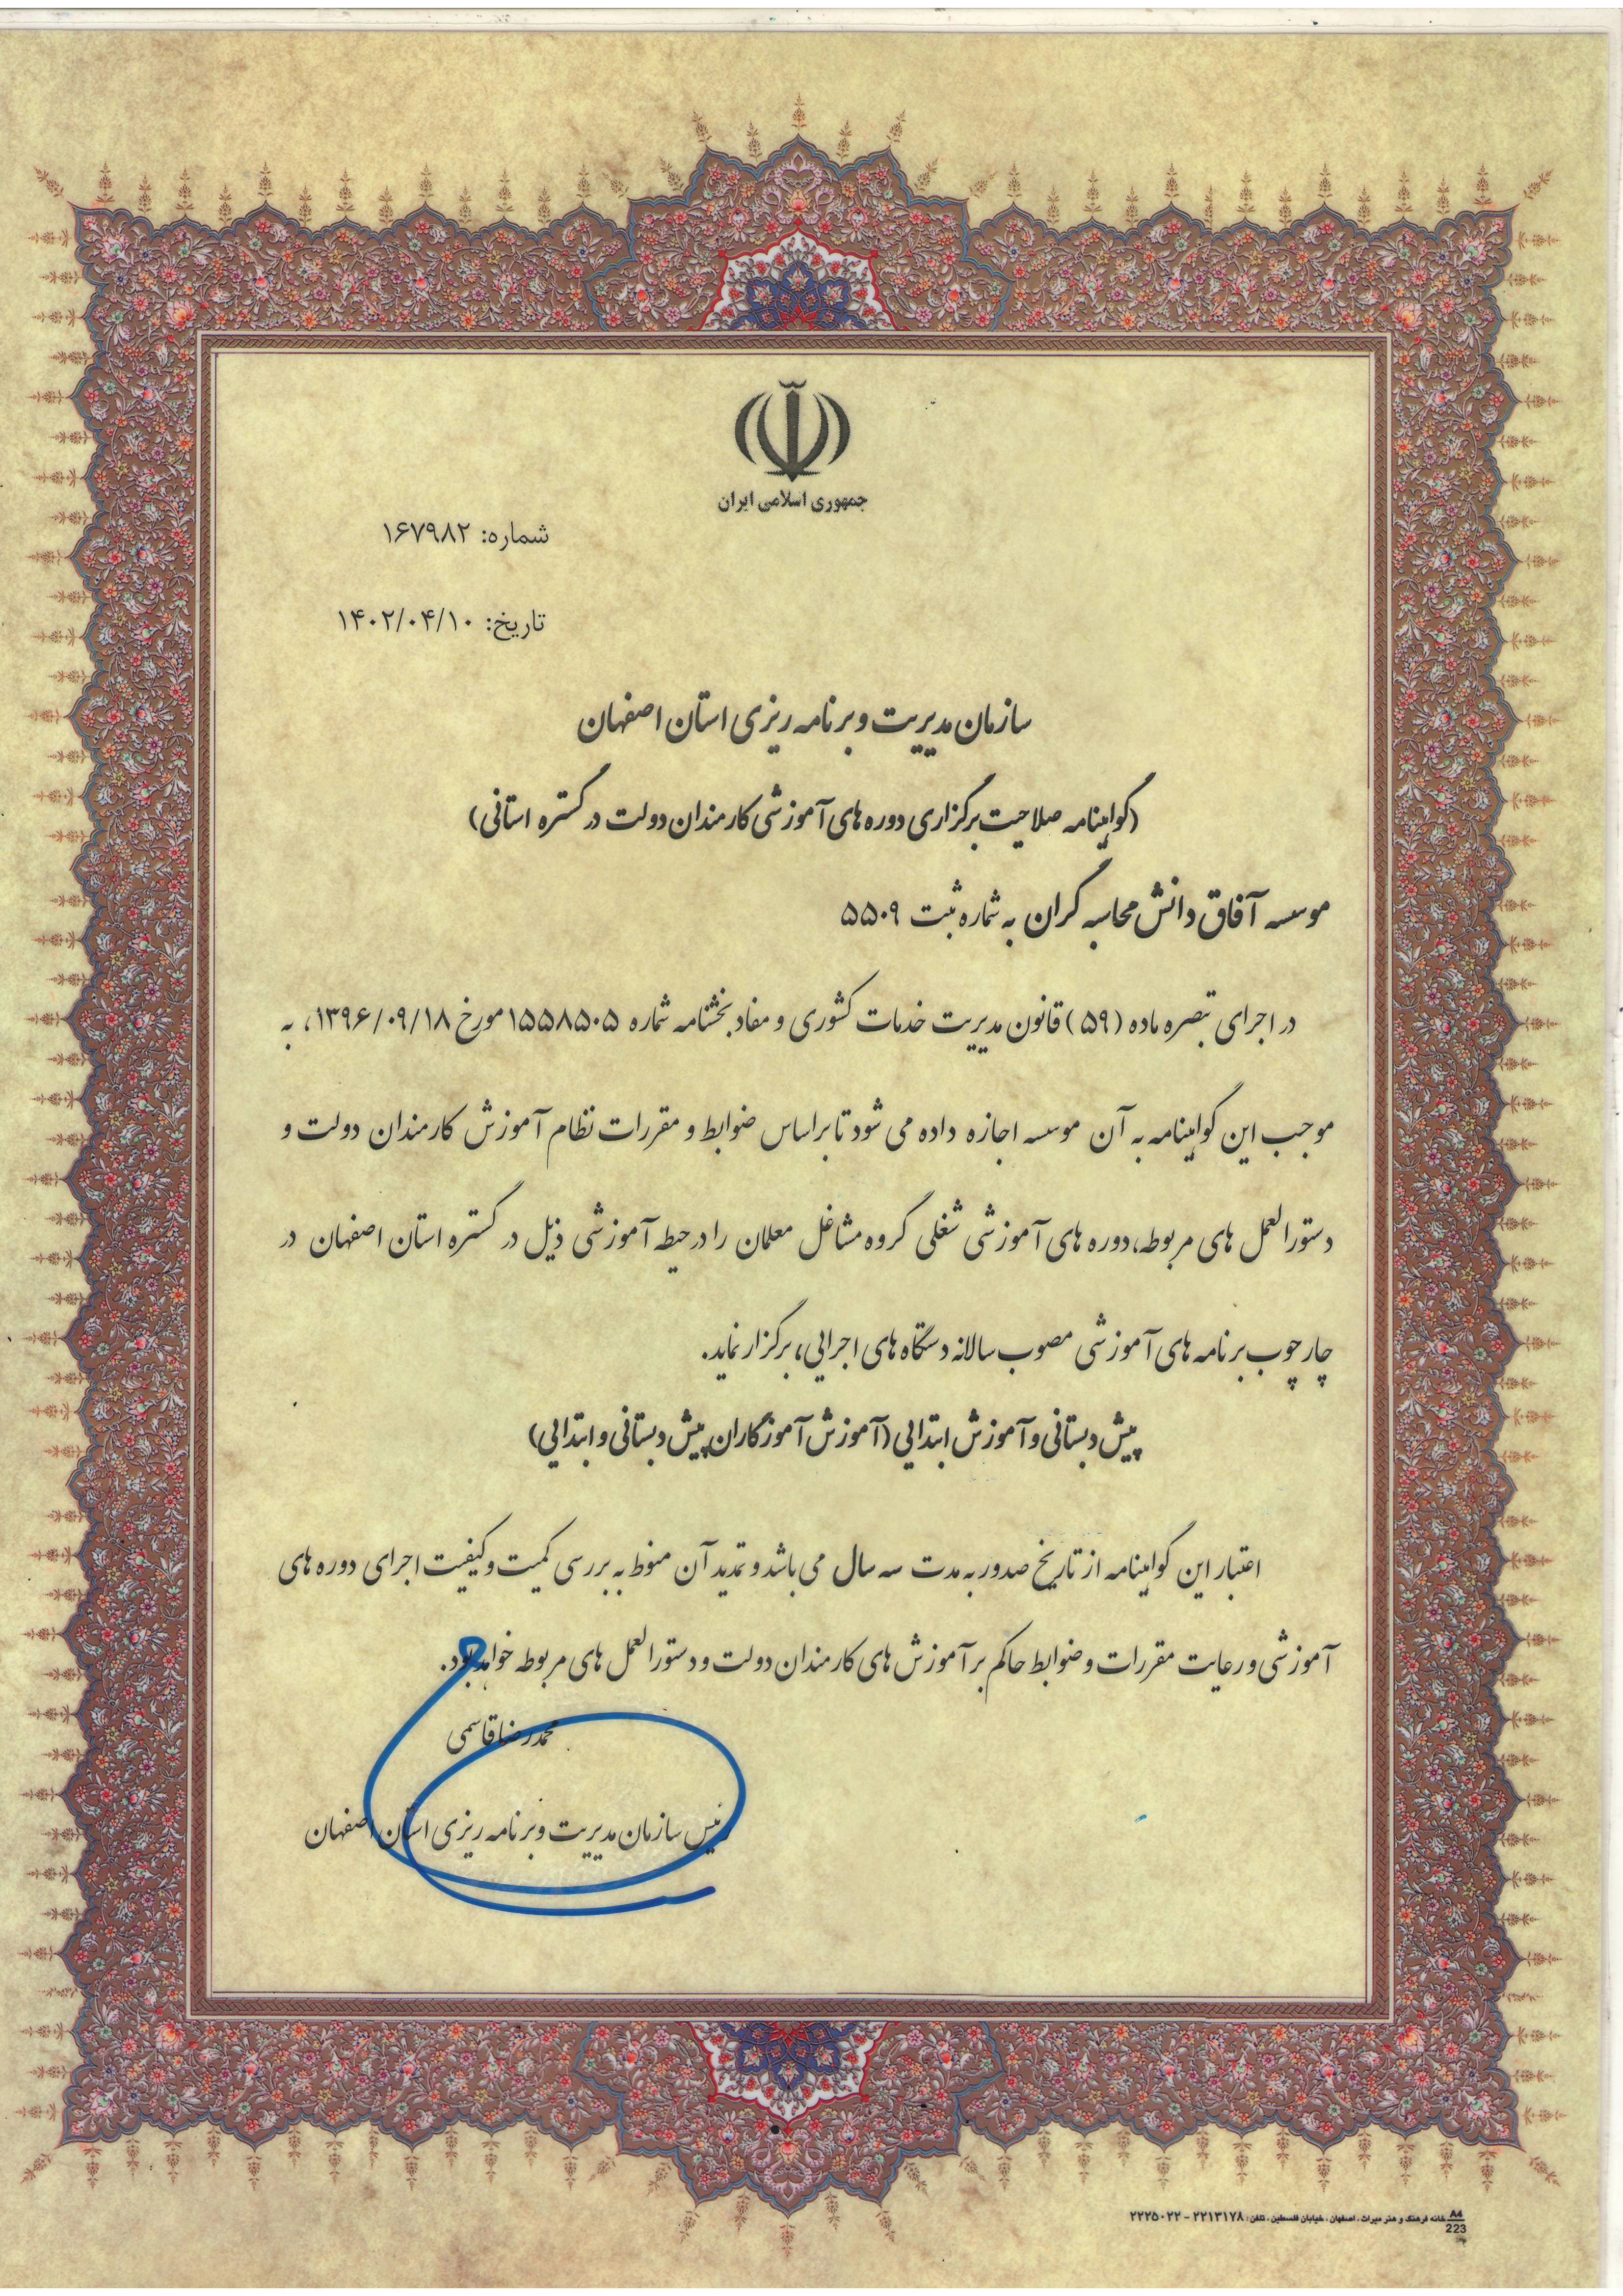 جمهوری اسلامی ایران
شماره: ۱۶۷۹۸۲
تاریخ: ۱۴۰۲/۰۴/۱۰
سازمان مدیریت و برنامه ریزی استان اصفهان
(گواهینامه صلاحیت برگزاری دوره های آموزشی کارمندان دولت در گستره استانی)
موسسه آفاق دانش محاسبه گران به شماره ثبت ۵۵۰۹
در اجرای تبصره ماده (۵۹) قانون مدیریت خدمات کشوری و مفاد بخشنامه شماره ۱۵۵۸۵۰۵ مورخ ۱۳۹۶/۰۹/۱۸، به
موجب این گواهینامه به آن موسسه اجازه داده می شود تا براساس ضوابط و مقررات نظام آموزش کارمندان دولت و
دستورالعمل های مربوطه، دوره های آموزشی شغلی گروه مشاغل معلمان را در حیطه آموزشی ذیل در گستره استان اصفهان در
چارچوب برنامه های آموزشی مصوب سالانه دستگاه های اجرایی، برگزار نماید.
پیش دبستانی و آموزش ابتدایی (آموزش آموزگاران پیش دبستانی و ابتدایی)
اعتبار این گواهینامه از تاریخ صدور به مدت سه سال می باشد و تمدید آن منوط به بررسی کمیت و کیفیت اجرای دوره های
آموزشی و رعایت مقررات و ضوابط حاکم بر آموزش های کارمندان دولت و دستورالعمل های مربوطه خواهد بود.
محمدرضا قاسمی
رئیس سازمان مدیریت و برنامه ریزی استان اصفهان
A4 خانه فرهنگ و هنر میراث، اصفهان، خیابان فلسطین، تلفن: ۲۲۱۳۱۷۸ - ۲۲۲۵۰۲۲
223